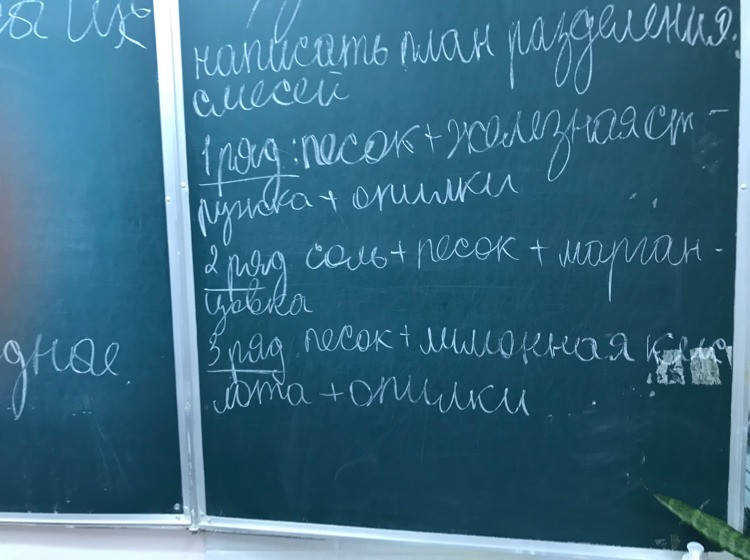 написать план разделения.
смесей
1 ряд: песок + железная ст-
ружка + опилки
2 ряд соль + песок + марган-
цовка
3 ряд песок + лимонная кис
лота + опилки
дное